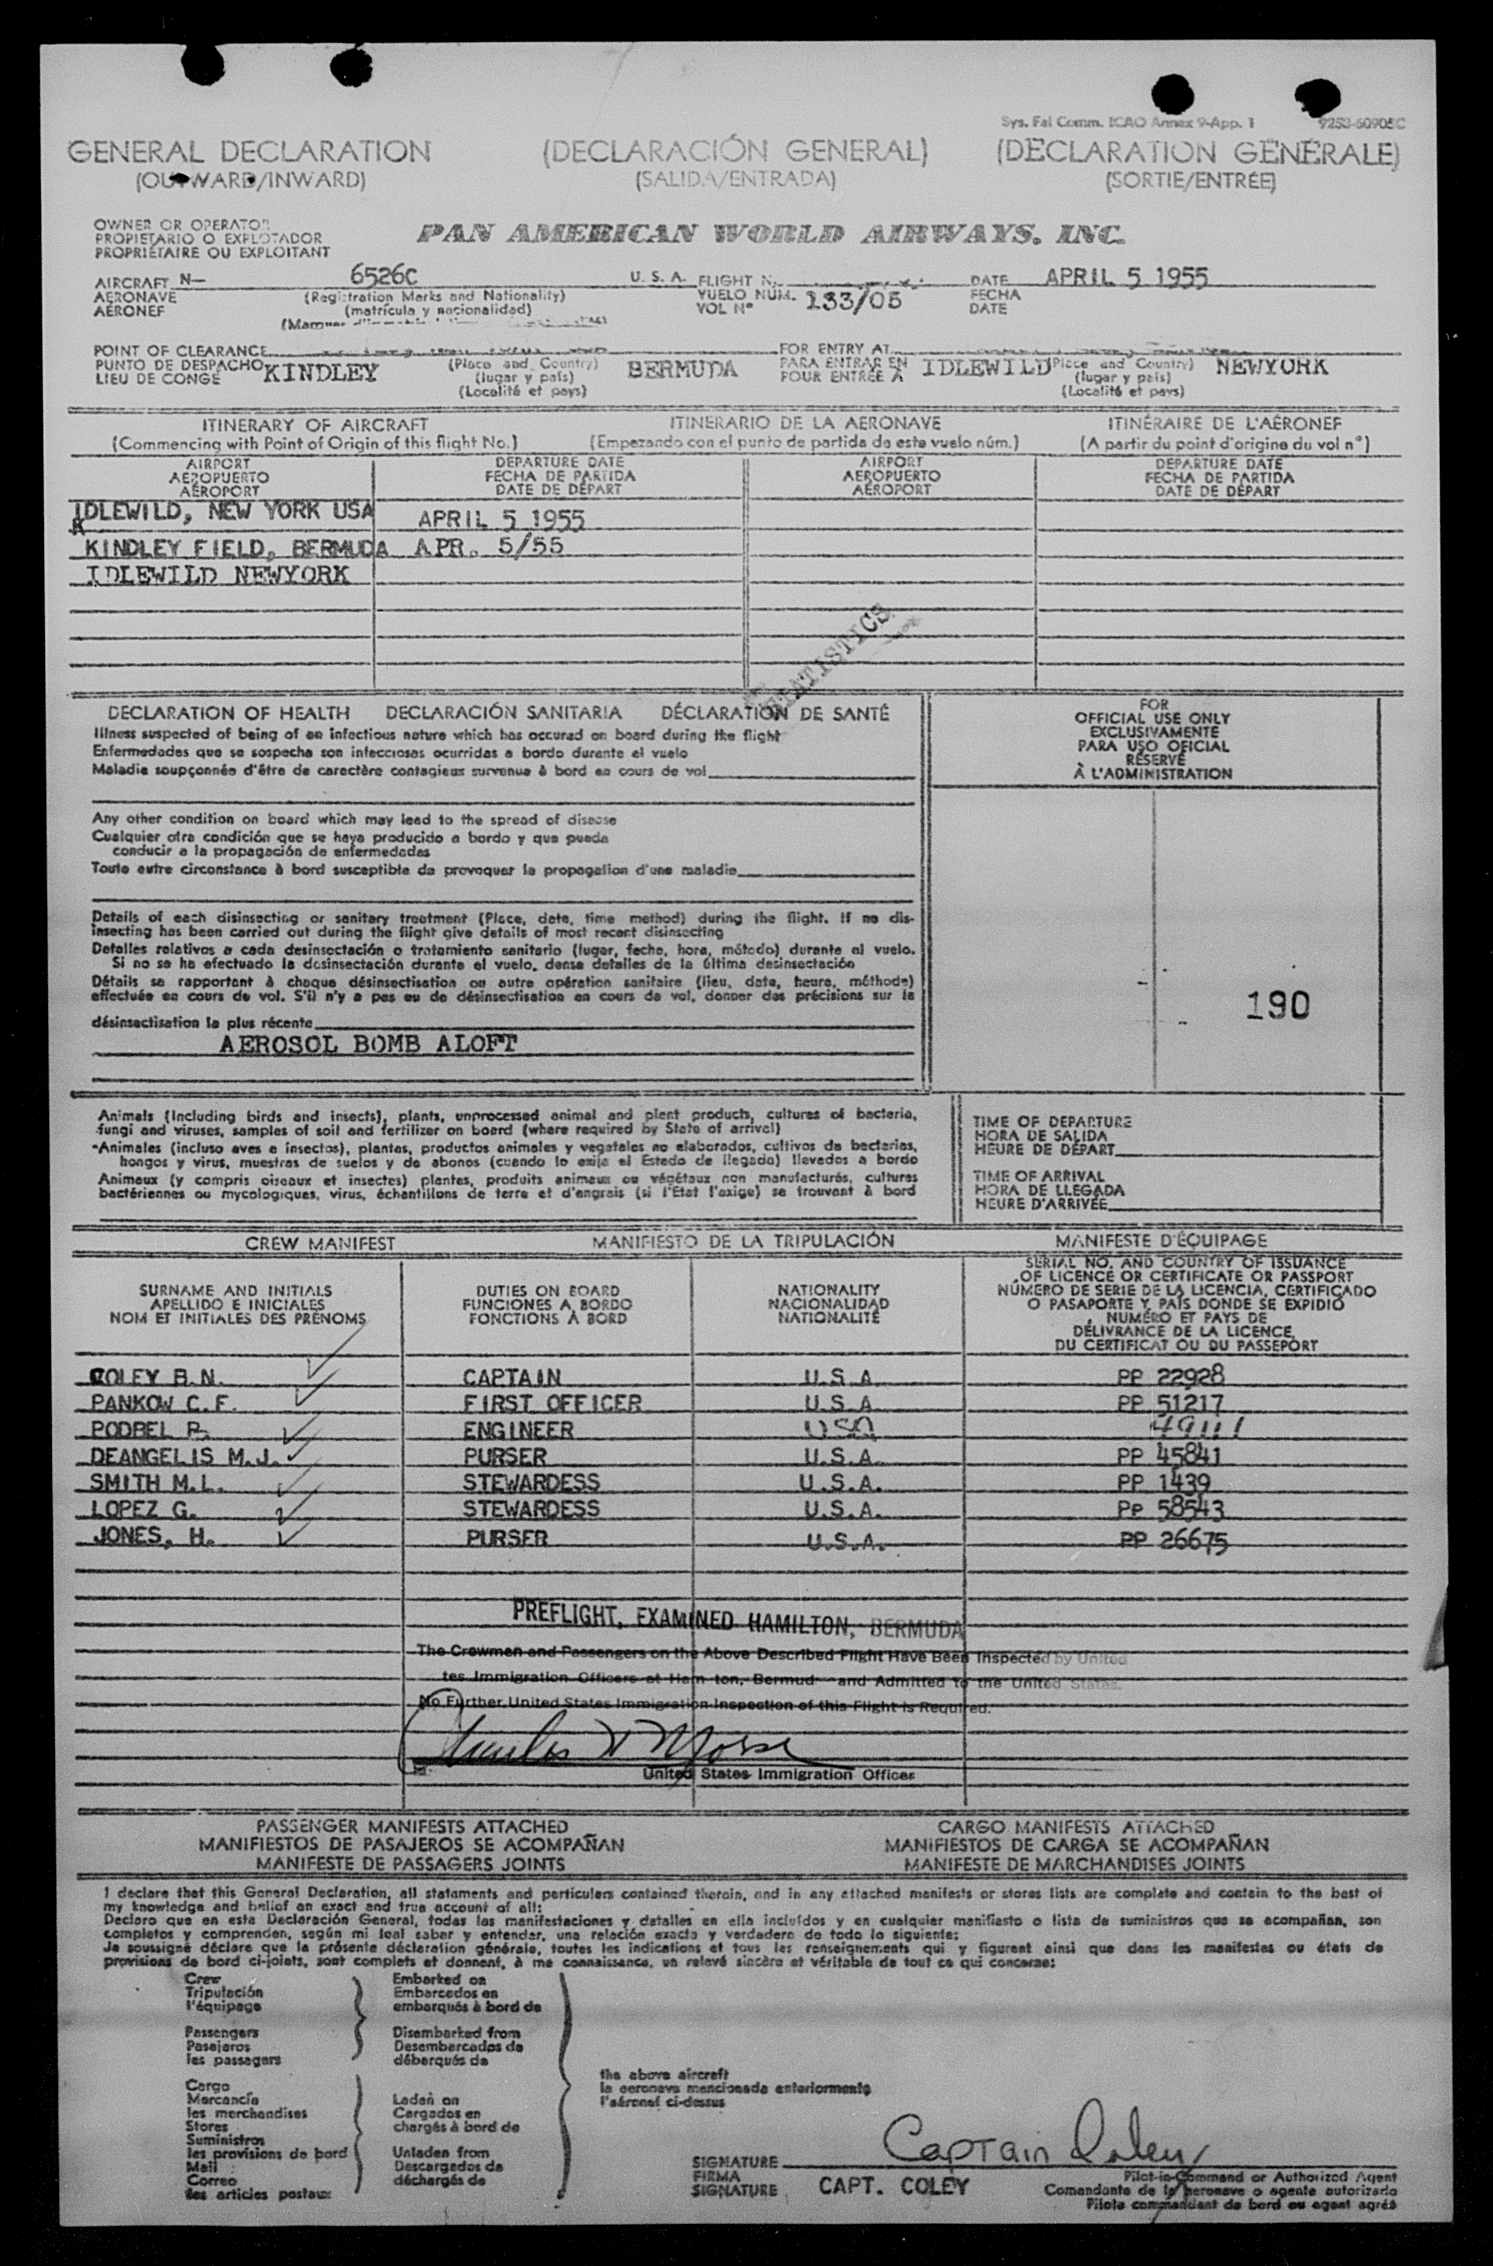 Sys. Fal Comm. ICAO Annex 9-App. 1 9253-60905C
GENERAL DECLARATION (DECLARACIÓN GENERAL) (DÉCLARATION GÉNÉRALE)
(OUTWARD/INWARD) (SALIDA/ENTRADA) (SORTIE/ENTRÉE)
OWNER OR OPERATOR
PROPIETARIO O EXPLOTADOR PAN AMERICAN WORLD AIRWAYS, INC.
PROPRIÉTAIRE OU EXPLOITANT
AIRCRAFT N— 6526C U. S. A. FLIGHT N. DATE APRIL 5 1955
AERONAVE (Registration Marks and Nationality) VUELO NÚM. 133/05 FECHA
AÉRONEF (matrícula y nacionalidad) VOL Nº DATE
POINT OF CLEARANCE FOR ENTRY AT
PUNTO DE DESPACHO KINDLEY (Place and Country) BERMUDA PARA ENTRAR EN IDLEWILD (Place and Country) NEWYORK
LIEU DE CONGÉ (lugar y país) POUR ENTRÉE À (lugar y país)
(Localité et pays) (Localité et pays)
ITINERARY OF AIRCRAFT ITINERARIO DE LA AERONAVE ITINÉRAIRE DE L'AÉRONEF
(Commencing with Point of Origin of this flight No.) (Empezando con el punto de partida de este vuelo núm.) (A partir du point d'origine du vol nº)
AIRPORT DEPARTURE DATE AIRPORT DEPARTURE DATE
AEROPUERTO FECHA DE PARTIDA AEROPUERTO FECHA DE PARTIDA
AÉROPORT DATE DE DÉPART AÉROPORT DATE DE DÉPART
IDLEWILD, NEW YORK USA APRIL 5 1955
KINDLEY FIELD, BERMUDA APR. 5/55
IDLEWILD NEWYORK
STATISTICS
DECLARATION OF HEALTH DECLARACIÓN SANITARIA DÉCLARATION DE SANTÉ
Illness suspected of being of an infectious nature which has occured on board during the flight
Enfermedades que se sospecha son infecciosas ocurridas a bordo durante el vuelo
Maladie soupçonnée d'être de caractère contagieux survenue à bord en cours de vol
FOR
OFFICIAL USE ONLY
EXCLUSIVAMENTE
PARA USO OFICIAL
RÉSERVÉ
À L'ADMINISTRATION
Any other condition on board which may lead to the spread of disease
Cualquier otra condición que se haya producido a bordo y que pueda
conducir a la propagación de enfermedades
Toute autre circonstance à bord susceptible de provoquer la propagation d'une maladie
Details of each disinsecting or sanitary treatment (Place, date, time method) during the flight. If no dis-
insecting has been carried out during the flight give details of most recent disinsecting
Detalles relativos a cada desinsectación o tratamiento sanitario (lugar, fecha, hora, método) durante el vuelo.
Si no se ha efectuado la desinsectación durante el vuelo, dense detalles de la última desinsectación
Détails se rapportant à chaque désinsectisation ou autre opération sanitaire (lieu, date, heure, méthode)
effectuée en cours de vol. S'il n'y a pas eu de désinsectisation en cours de vol, donner des précisions sur la
désinsectisation la plus récente
190
AEROSOL BOMB ALOFT
Animals (Including birds and insects), plants, unprocessed animal and plant products, cultures of bacteria,
fungi and viruses, samples of soil and fertilizer on board (where required by State of arrival)
Animales (incluso aves e insectos), plantas, productos animales y vegetales no elaborados, cultivos de bacterias,
hongos y virus, muestras de suelos y de abonos (cuando lo exija el Estado de llegada) llevados a bordo
Animaux (y compris oiseaux et insectes) plantes, produits animaux ou végétaux non manufacturés, cultures
bactériennes ou mycologiques, virus, échantillons de terre et d'engrais (si l'Etat l'exige) se trouvant à bord
TIME OF DEPARTURE
HORA DE SALIDA
HEURE DE DÉPART
TIME OF ARRIVAL
HORA DE LLEGADA
HEURE D'ARRIVÉE
CREW MANIFEST MANIFIESTO DE LA TRIPULACIÓN MANIFESTE D'ÉQUIPAGE
SURNAME AND INITIALS
APELLIDO E INICIALES
NOM ET INITIALES DES PRÉNOMS
DUTIES ON BOARD
FUNCIONES A BORDO
FONCTIONS À BORD
NATIONALITY
NACIONALIDAD
NATIONALITÉ
SERIAL NO. AND COUNTRY OF ISSUANCE
OF LICENCE OR CERTIFICATE OR PASSPORT
NÚMERO DE SERIE DE LA LICENCIA, CERTIFICADO
O PASAPORTE Y PAÍS DONDE SE EXPIDIÓ
NUMÉRO ET PAYS DE
DÉLIVRANCE DE LA LICENCE,
DU CERTIFICAT OU DU PASSEPORT
COLEY B.N. CAPTAIN U.S.A. PP 22928
PANKOW C.F. FIRST OFFICER U.S.A. PP 51217
PODBEL P. ENGINEER USA 49111
DEANGELIS M.J. PURSER U.S.A. PP 45841
SMITH M.L. STEWARDESS U.S.A. PP 1439
LOPEZ G. STEWARDESS U.S.A. PP 58543
JONES, H. PURSER U.S.A. PP 26675
PREFLIGHT, EXAMINED HAMILTON, BERMUDA
The Crewmen and Passengers on the Above Described Flight Have Been Inspected by United
tes Immigration Officers at Ham ton, Bermud and Admitted to the United States.
No Further United States Immigration Inspection of this Flight is Required.
Charles W Morse
United States Immigration Officer
PASSENGER MANIFESTS ATTACHED CARGO MANIFESTS ATTACHED
MANIFIESTOS DE PASAJEROS SE ACOMPAÑAN MANIFIESTOS DE CARGA SE ACOMPAÑAN
MANIFESTE DE PASSAGERS JOINTS MANIFESTE DE MARCHANDISES JOINTS
I declare that this General Declaration, all statements and particulars contained therein, and in any attached manifests or stores lists are complete and contain to the best of
my knowledge and belief an exact and true account of all:
Declaro que en esta Declaración General, todas las manifestaciones y detalles en ella incluídos y en cualquier manifiesto o lista de suministros que se acompañan, son
completos y comprenden, según mi leal saber y entender, una relación exacta y verdadera de todo lo siguiente:
Je soussigné déclare que la présente déclaration générale, toutes les indications et tous les renseignements qui y figurent ainsi que dans les manifestes ou états de
provisions de bord ci-joints, sont complets et donnent, à me connaissance, un relevé sincère et véritable de tout ce qui concerne:
Crew Embarked on
Tripulación Embarcados en
l'équipage embarqués à bord de
Passengers Disembarked from
Pasajeros Desembarcados de
les passagers débarqués de
the above aircraft
la aeronave mencionada anteriormente
l'aéronef ci-dessus
Cargo
Mercancía Laden on
les merchandises Cargados en
Stores chargés à bord de
Suministros
les provisions de bord Unladen from
Mail Descargados de
Correo déchargés de
les articles postaux
SIGNATURE Captain Coley
FIRMA Pilot-in-Command or Authorized Agent
SIGNATURE CAPT. COLEY Comandante de la aeronave o agente autorizado
Pilote commandant de bord ou agent agréé